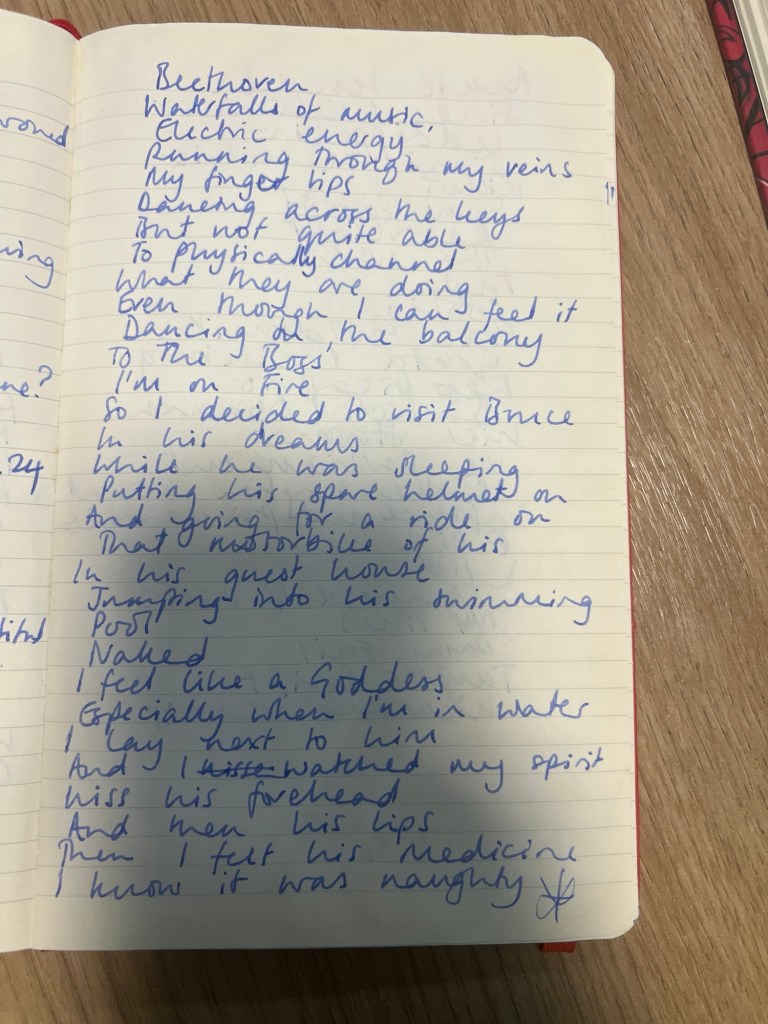 Beethoven,
Waterfalls of music,
Electric energy
Running through my veins
My finger tips
Dancing across the keys
But not quite able
To physically channel
What they are doing
Even though I can feel it
Dancing on the balcony
To The Boss'
I'm on Fire
So I decided to visit Bruce
In his dreams
While he was sleeping
Putting his spare helmet on
And going for a ride on
That motorbike of his
In his guest house
Jumping into his swimming
Pool
Naked
I feel like a Goddess
Especially when I'm in water
I lay next to him
And I kisse watched my spirit
kiss his forehead
And then his lips
Then I felt his medicine
I know it was naughty
ing
me?
.24